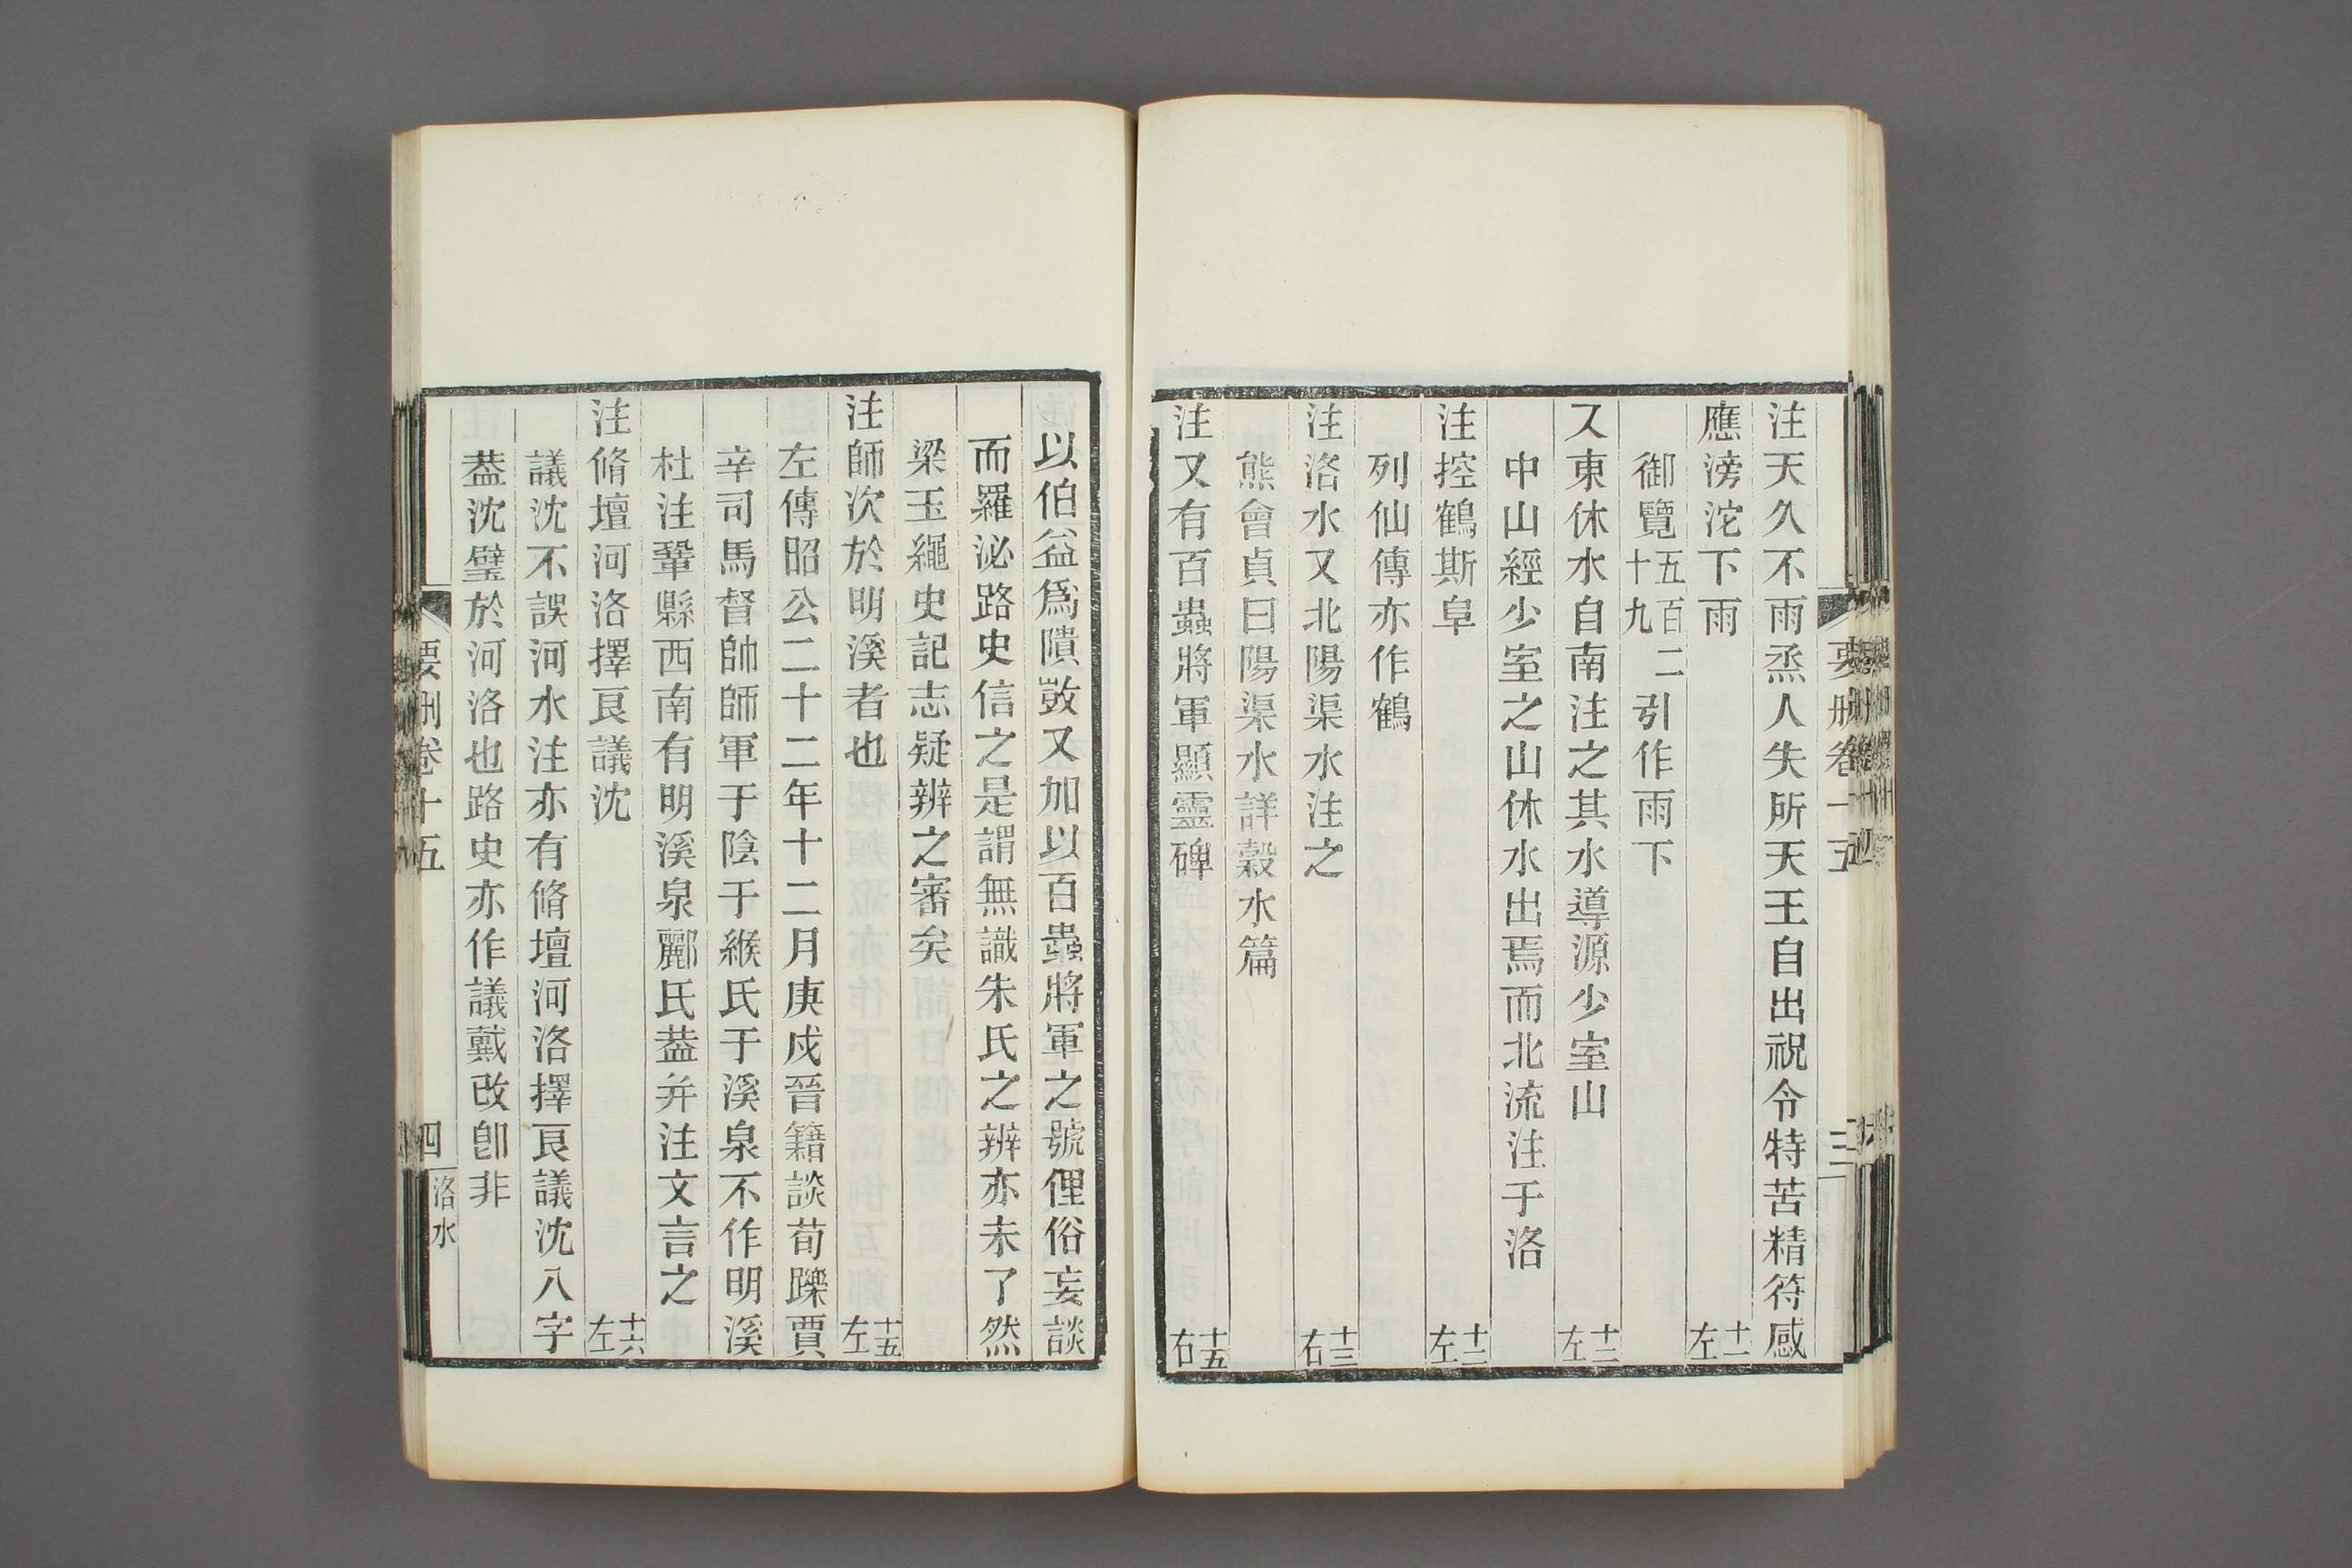 注天久不雨烝人失所天王自出祝令特苦精符感
應滂沱下雨 十一左
御覽五百二十九引作雨下
又東休水自南注之其水導源少室山 十二左
中山經少室之山休水出焉而北流注于洛
注控鶴斯阜 十二左
列仙傳亦作鶴
注洛水又北陽渠水注之 十三右
熊會貞曰陽渠水詳穀水篇
注又有百蟲將軍顯靈碑 十五右
要刪卷十五 三
以伯益爲隤敳又加以百蟲將軍之號俚俗妄談
而羅泌路史信之是謂無識朱氏之辨亦未了然
梁玉繩史記志疑辨之審矣
注師次於明溪者也 十五左
左傳昭公二十二年十二月庚戌晉籍談荀躒賈
辛司馬督帥師軍于陰于緱氏于溪泉不作明溪
杜注鞏縣西南有明溪泉酈氏葢并注文言之
注脩壇河洛擇良議沈 十六左
議沈不誤河水注亦有脩壇河洛擇良議沈八字
葢沈璧於河洛也路史亦作議戴改卽非
要刪卷十五 四 洛水